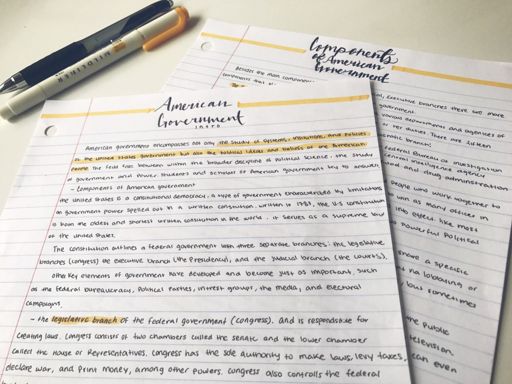 MILDLINER
American
Government
INTRO
American government encompasses not only the study of systems, institutions, and policies
of the United States government but also the political ideas and beliefs of the American
people. The field fits between within the broader discipline of political science, the study
of government and power. Students and scholars of American government try to answer
- Components of American government
The United States is a constitutional democracy, a type of government characterized by limitations
on government power spelled out in a written constitution. Written in 1787, the U.S constitution
is both the oldest and shortest written constitution in the world. It serves as a supreme law
of the United States.
The constitution outlines a federal government with three separate branches: the legislative
branches (congress) the executive branch (the Presidency), and the Judicial branch (the courts).
other key elements of government have developed and become just as important, such
as the federal bureaucracy, Political Parties, interest groups, the media, and electoral
campaigns.
- the legislative branch of the federal government (congress). and is responsible for
creating laws. Congress consists of two chambers called the senate and the lower chamber
called the house of Representatives. Congress has the sole authority to make laws, levy taxes,
declare war, and print money, among other powers. Congress also controls the federal
Components
of American
Government
Besides the main components
components that
executive branches there two more
various departments and agencies of
or her duties. There are fifteen
branch:
Federal Bureau of Investigation
central intelligence agency
and drug administration
people who work together to
win as many offices in
into effect. like most
powerful political
share a specific
by lobbying or
, but sometimes
the public
television.
can even